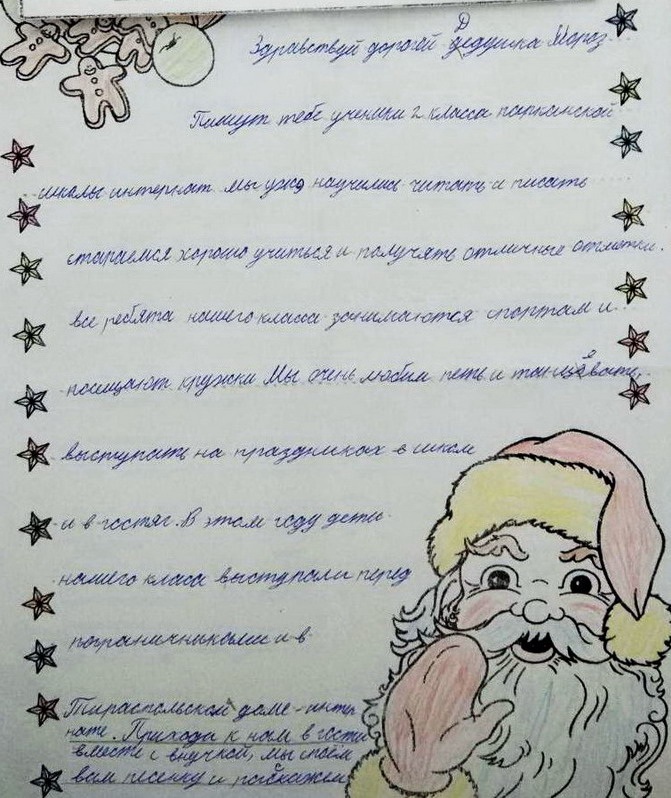 Здравствуй дорогой Дедушка Мороз.
Пишут тебе ученики 2 класса парканской
школы интернат мы уже научились читать и писать
стараемся хорошо учиться и получять отличные отметки.
все ребята нашего класса занимаются спортам и
посещают кружки Мы очень любим петь и танцевать,
выступать на праздниках в школе
и в гостях. В этом году дети
нашего класа выступали перед
пограничниками и в
Тираспольском доме-интер
нате. Приходи к нам в гости
вместе с внучкой, мы споём
вам песенку и раскажем